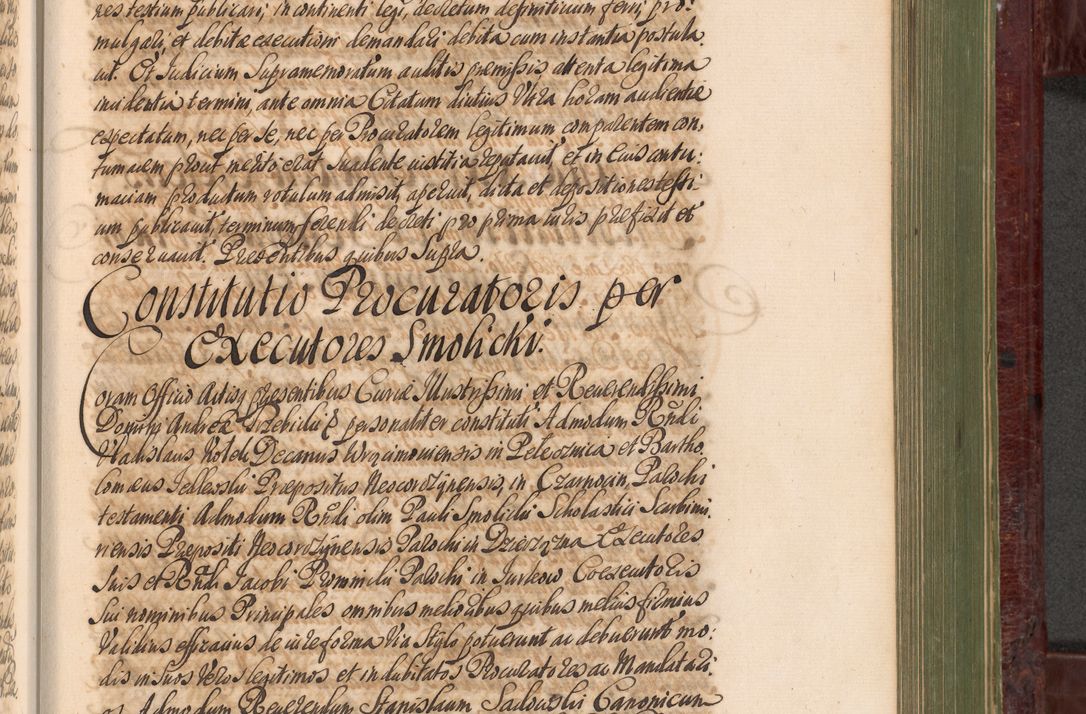 res testium publicari, in continenti legi, decretum definitivum ferri, pro:
mulgari, et debitæ executioni demandari debita cum instantia postula:
vit. Et Judicium Supramemoratum auditis præmissis attenta legitima
incidentia termini, ante omnia Citatum diutius Ultra horam audientiæ
expectatum, nec per se, nec per Procuratorem legitimum comparentem con:
tumacem prout merito erat suadente iustitia reputavit, et in Eius contu:
maciam productum rotulum admisit, aperuit, dicta et depositiones testi:
um publicavit, terminum ferendi decreti pro prima iuris præfixit et
conservavit. Præsentibus quibus Supra.
Constitutio Procuratoris per
Executores Smolicki.
Coram Officio Actisq præsentibus Curiæ Illustrissimi et Reverendissimi
Domini Andreæ Trzebicki personaliter constituti Admodum Rndi
Vladislaus Decanus in et Bartho:
lomæus Præpositus Neocorczynensis, in Czarnocin, Parochi
testamenti Admodum Rndi olim Pauli Smolicki Scholastici Scarbimi:
riensis Præpositi Neocorczynensis Parochi in Executores
suis et Rndi Jacobi Parochi in Coexecutoris
sui nominibus Principales omnibus melioribus quibus melius firmius
Validius efficacius de iure forma Via Stylo potuerunt ac debuerunt mo:
dis in suos Veros legitimos et indubitatos Procuratores ac Mandatari:
os Admodum Reverendum Stanislaum Canonicum